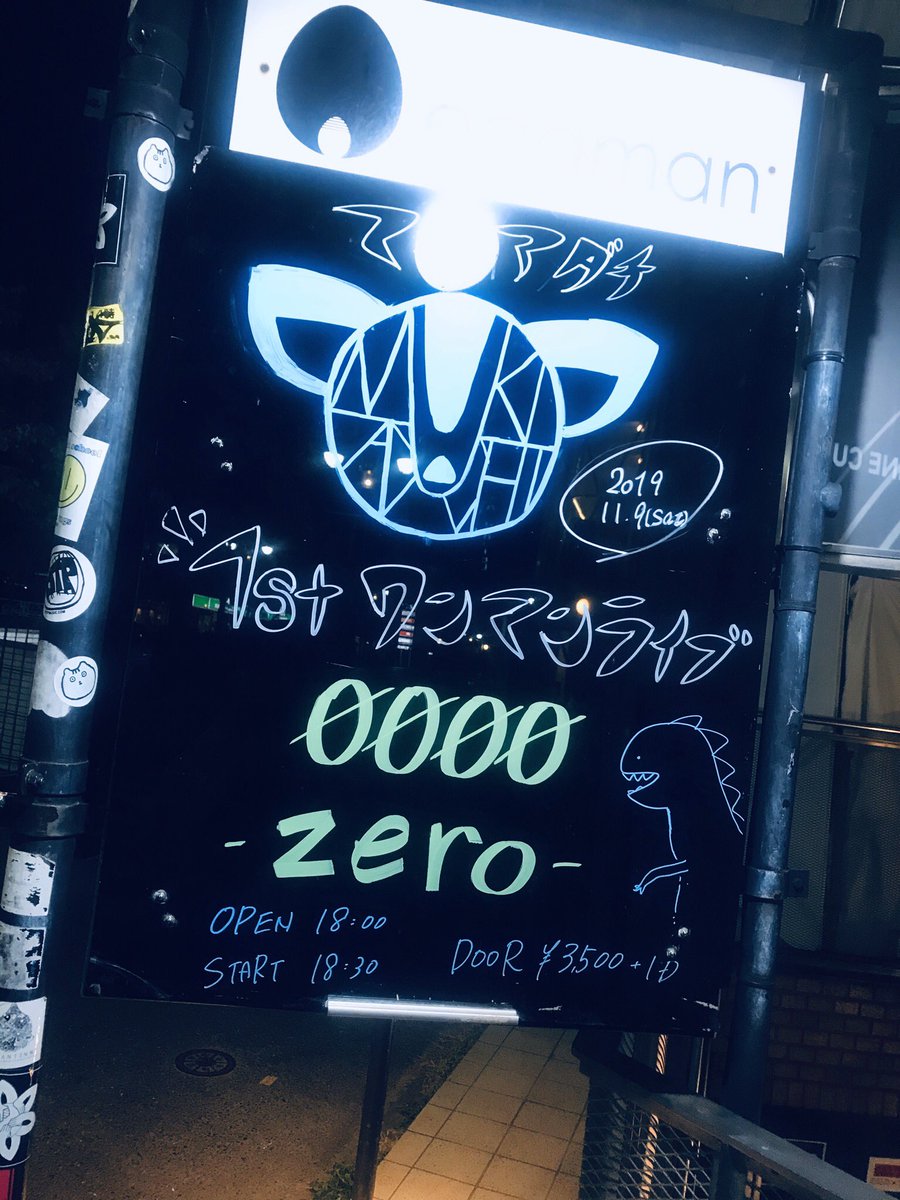 man
マ アダチ
2019
11.9(Sat)
1st ワンマンライブ
0000
-zero-
OPEN 18:00
START 18:30
DOOR ¥3,500+1D
NE CU